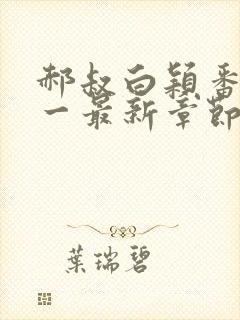 郝叔白颖番
一最新章節
葉瑞碧